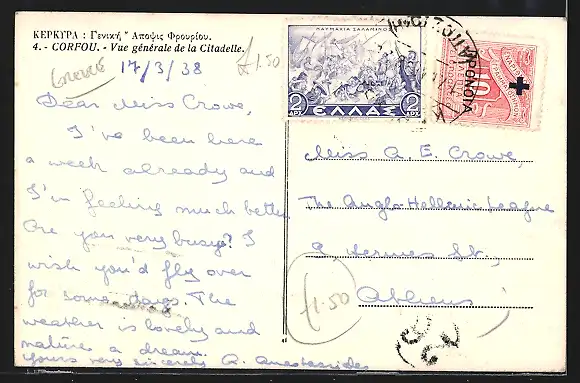 ΚΕΡΚΥΡΑ : Γενική Ἄποψις Φρουρίου.
4. - CORFOU. - Vue générale de la Citadelle.
Greece
17/3/38
£1.50
Dear Miss Crowe,
I've been here
a week already and
I'm feeling much better
Are you very busy? I
wish you'd fly over
for some days. The
weather is lovely and
nature a dream.
Yours very sincerely A. Anastasides
ΝΑΥΜΑΧΙΑ ΣΑΛΑΜΙΝΟΣ
2 ΔΡ. ΕΛΛΑΣ 2 ΔΡ.
ΠΡΟΝΟΙΑ
10
Miss A. E. Crowe,
The Anglo-Hellenic League
9 Hermes St.,
Athens
£1.50